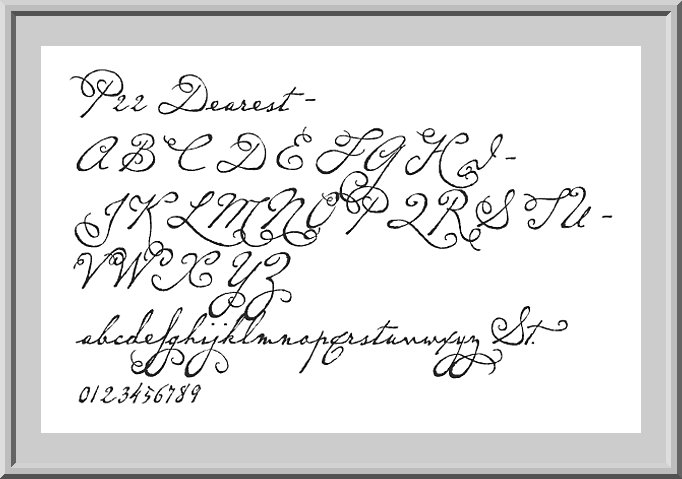 P22 Dearest -
A B C D E F G H I -
J K L M N O P Q R S T U -
V W X Y Z
abcdefghijklmnopqrstuvwxyz St.
0123456789